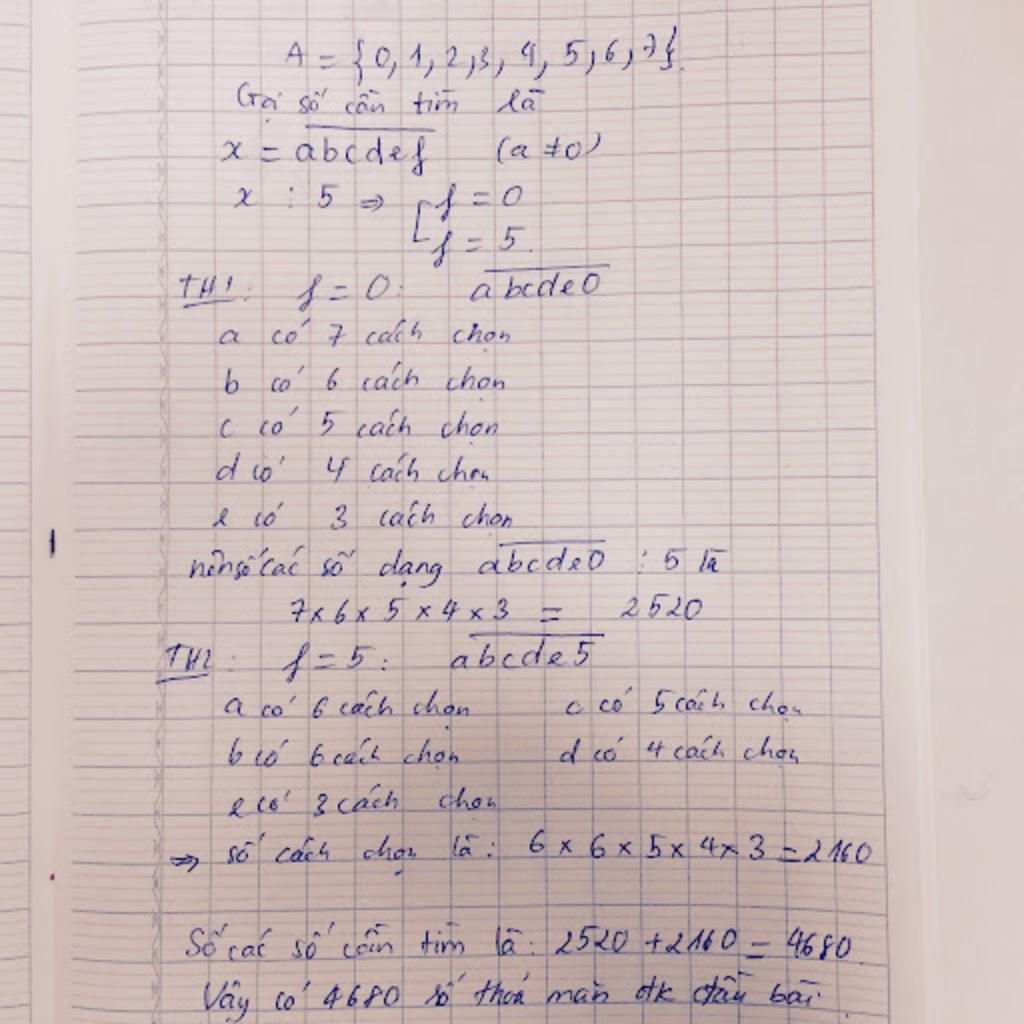 A = {0, 1, 2, 3, 4, 5, 6, 7}.
Gọi số cần tìm là
x = abcdef (a ≠ 0)
x ⋮ 5 ⇒ [ f = 0
f = 5.
TH1: f = 0: abcde0
a có 7 cách chọn
b có 6 cách chọn
c có 5 cách chọn
d có 4 cách chọn
e có 3 cách chọn
nên số các số dạng abcde0 ⋮ 5 là
7 x 6 x 5 x 4 x 3 = 2520
TH2: f = 5: abcde5
a có 6 cách chọn c có 5 cách chọn
b có 6 cách chọn d có 4 cách chọn
e có 3 cách chọn
⇒ số cách chọn là: 6 x 6 x 5 x 4 x 3 = 2160
Số các số cần tìm là: 2520 + 2160 = 4680.
Vậy có 4680 số thoả mãn đk đầu bài.